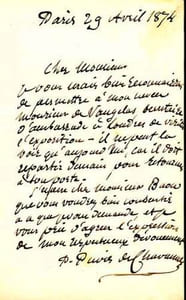 Paris 29 Avril 1874
Cher Monsieur
Je vous serais bien reconnaissant
de permettre à mon neveu
Monsieur de
d'ambassade à Londres de visiter
l'exposition - il ne peut la
voir qu'aujourd'hui car il doit
repartir demain pour retourner
à son poste.
J'espère cher Monsieur
que vous voudrez bien consentir
à ce que je vous demande, et je
vous prie d'agréer l'expression
de mon respectueux dévouement
P. Puvis de Chavannes